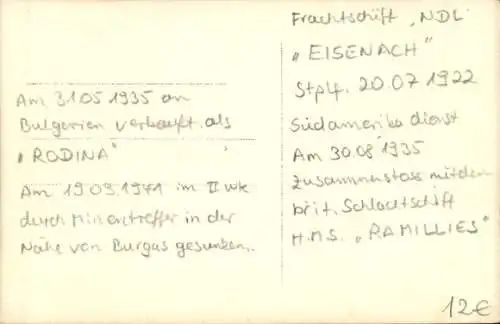 Frachtschift "NDL
"EISENACH"
Stplf. 20.07 1922
Südamerika dienst
Am 30.08 1935
Zusammenstoss mit dem
brit. Schlachtschift
H.M.S. "RAMILLIES"
Am 31.05 1935 an
Bulgarien verkauft als
"RODINA"
Am 19.09.1941 im II WK
durch Minentreffer in der
Nähe von Burgas gesunken.
12€